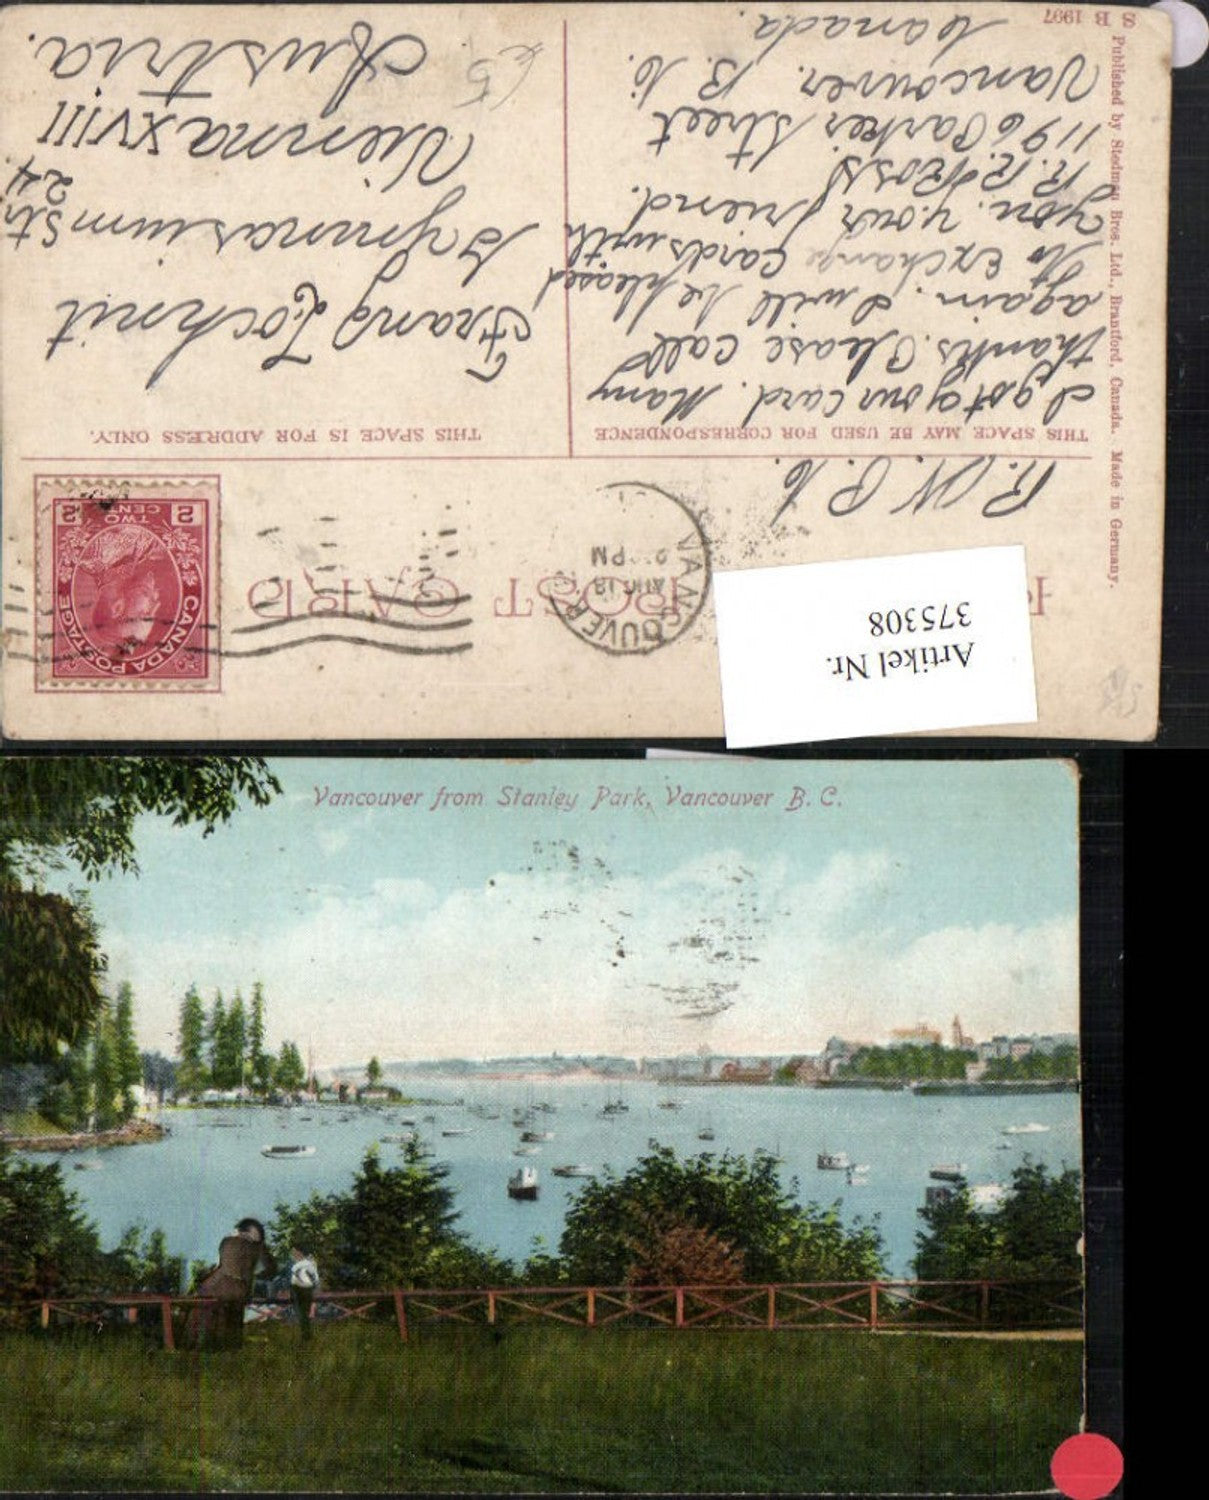 POST CARD
VANCOUVER
PM
CANADA POSTAGE
2 TWO CENTS 2
THIS SPACE MAY BE USED FOR CORRESPONDENCE
THIS SPACE IS FOR ADDRESS ONLY.
I got your card. Many
thanks. Please call
again. I will be pleased
to exchange cards with
you. Your friend.
R. R. Ross
1196 Parker Street
Vancouver. B. C.
Canada.
Franz
Gymnasium Str.
24
Vienna XVIII
Austria.
S B 1997
Published by Stedman Bros. Ltd., Brantford, Canada. Made in Germany.
Artikel Nr.
375308
Vancouver from Stanley Park, Vancouver B. C.